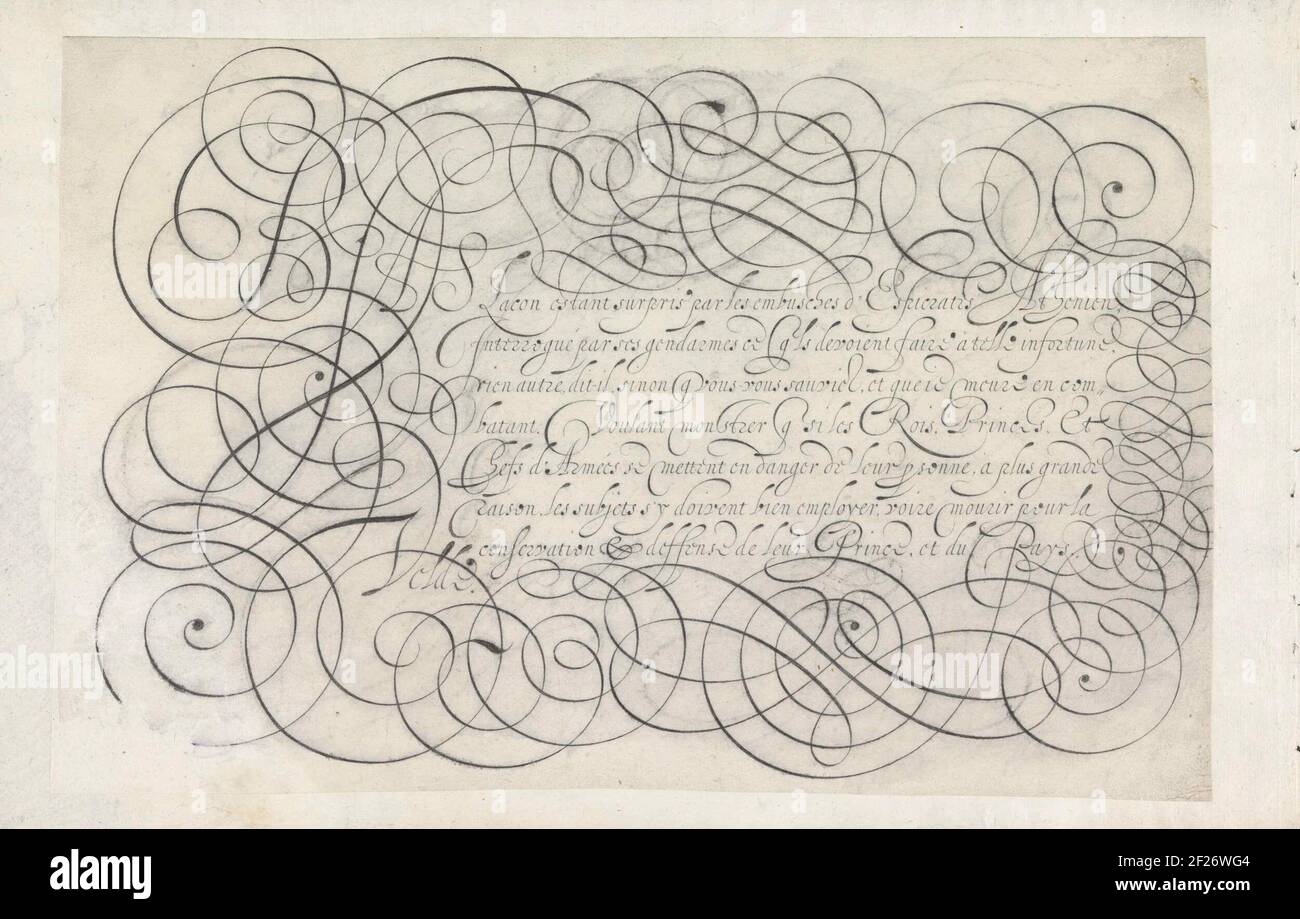 Lacon estant surpris par les embusches d'Espicratis Athenien,
Interrogué par ses gendarmes ce q'ls devoient faire à telle infortune,
rien autre, dit-il, sinon q vous vous sauviel, et que ie meure en com-
batant. Voulant monstrer q si les Rois, Princes, et
Chefs d'Armées se mettent en danger de leur psonne, a plus grande
raison, les subjets s'y doivent bien employer, voire mourir pour la
conservation & deffense de leur Prince, et du Pays.
Velde.
alamy
alamy
Image ID: 2F26WG4
www.alamy.com